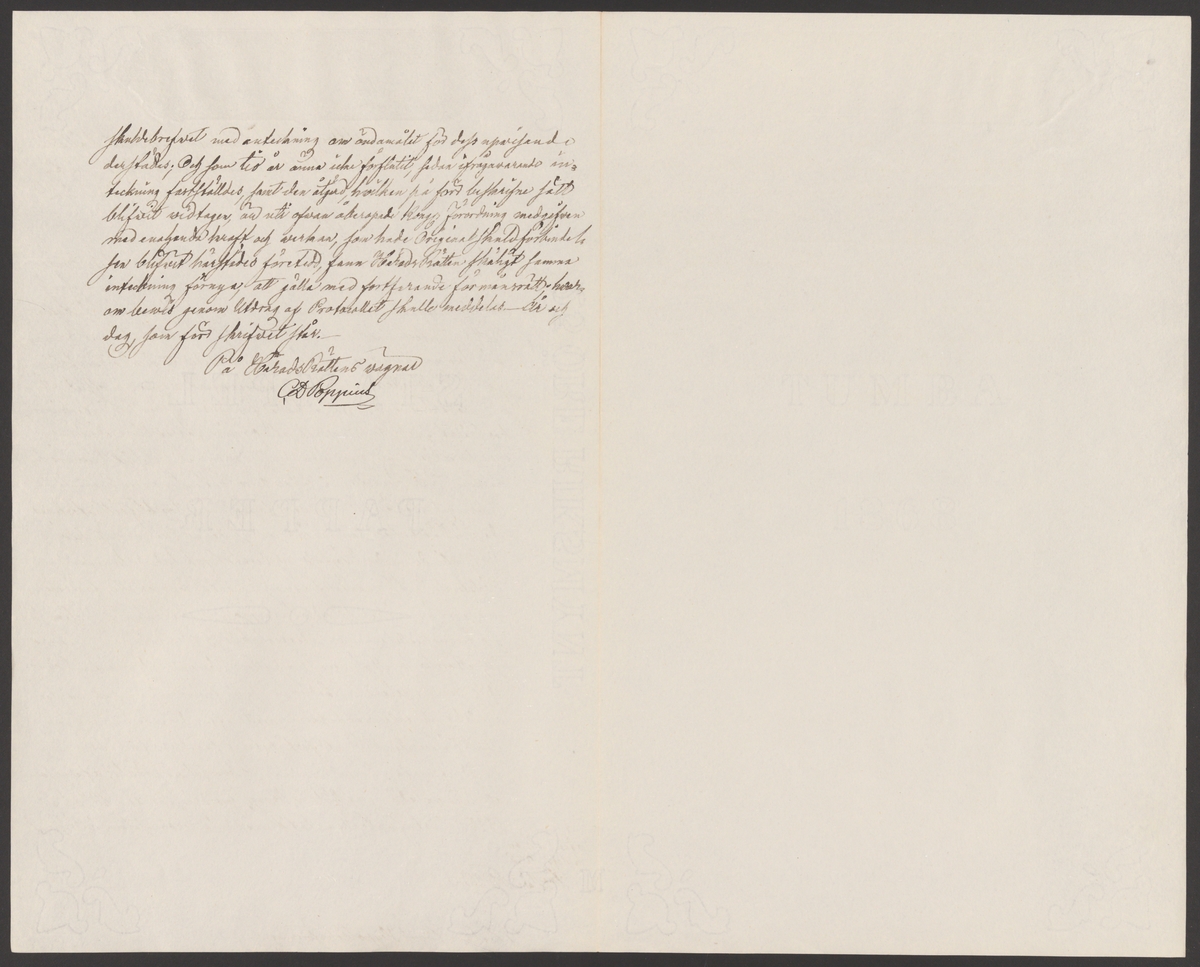 skuldebrefvet med anteckning om ändamålet för dess uppvisande
derstädes; Och som tio år ännu icke förflutit, sedan ifrågavarande in-
teckning fastställdes, samt den åtgärd, hvilken på förut beskrifne sätt
blifvit vidtagen, är uti ofvan åberopade Kongl. Förordning medgifven
med enahanda kraft och verkan, som hade Original skuldförbindel-
sen blifvit härstädes företedd, fann HäradsRätten skäligt samma
inteckning förnya, att gälla med fortfarande förmånsrätt; hvar-
om bevis genom Utdrag af Protocollet skulle meddelas. År och
dag, som förr skrifvet står.
På HäradsRättens vägnar
CD Poppius